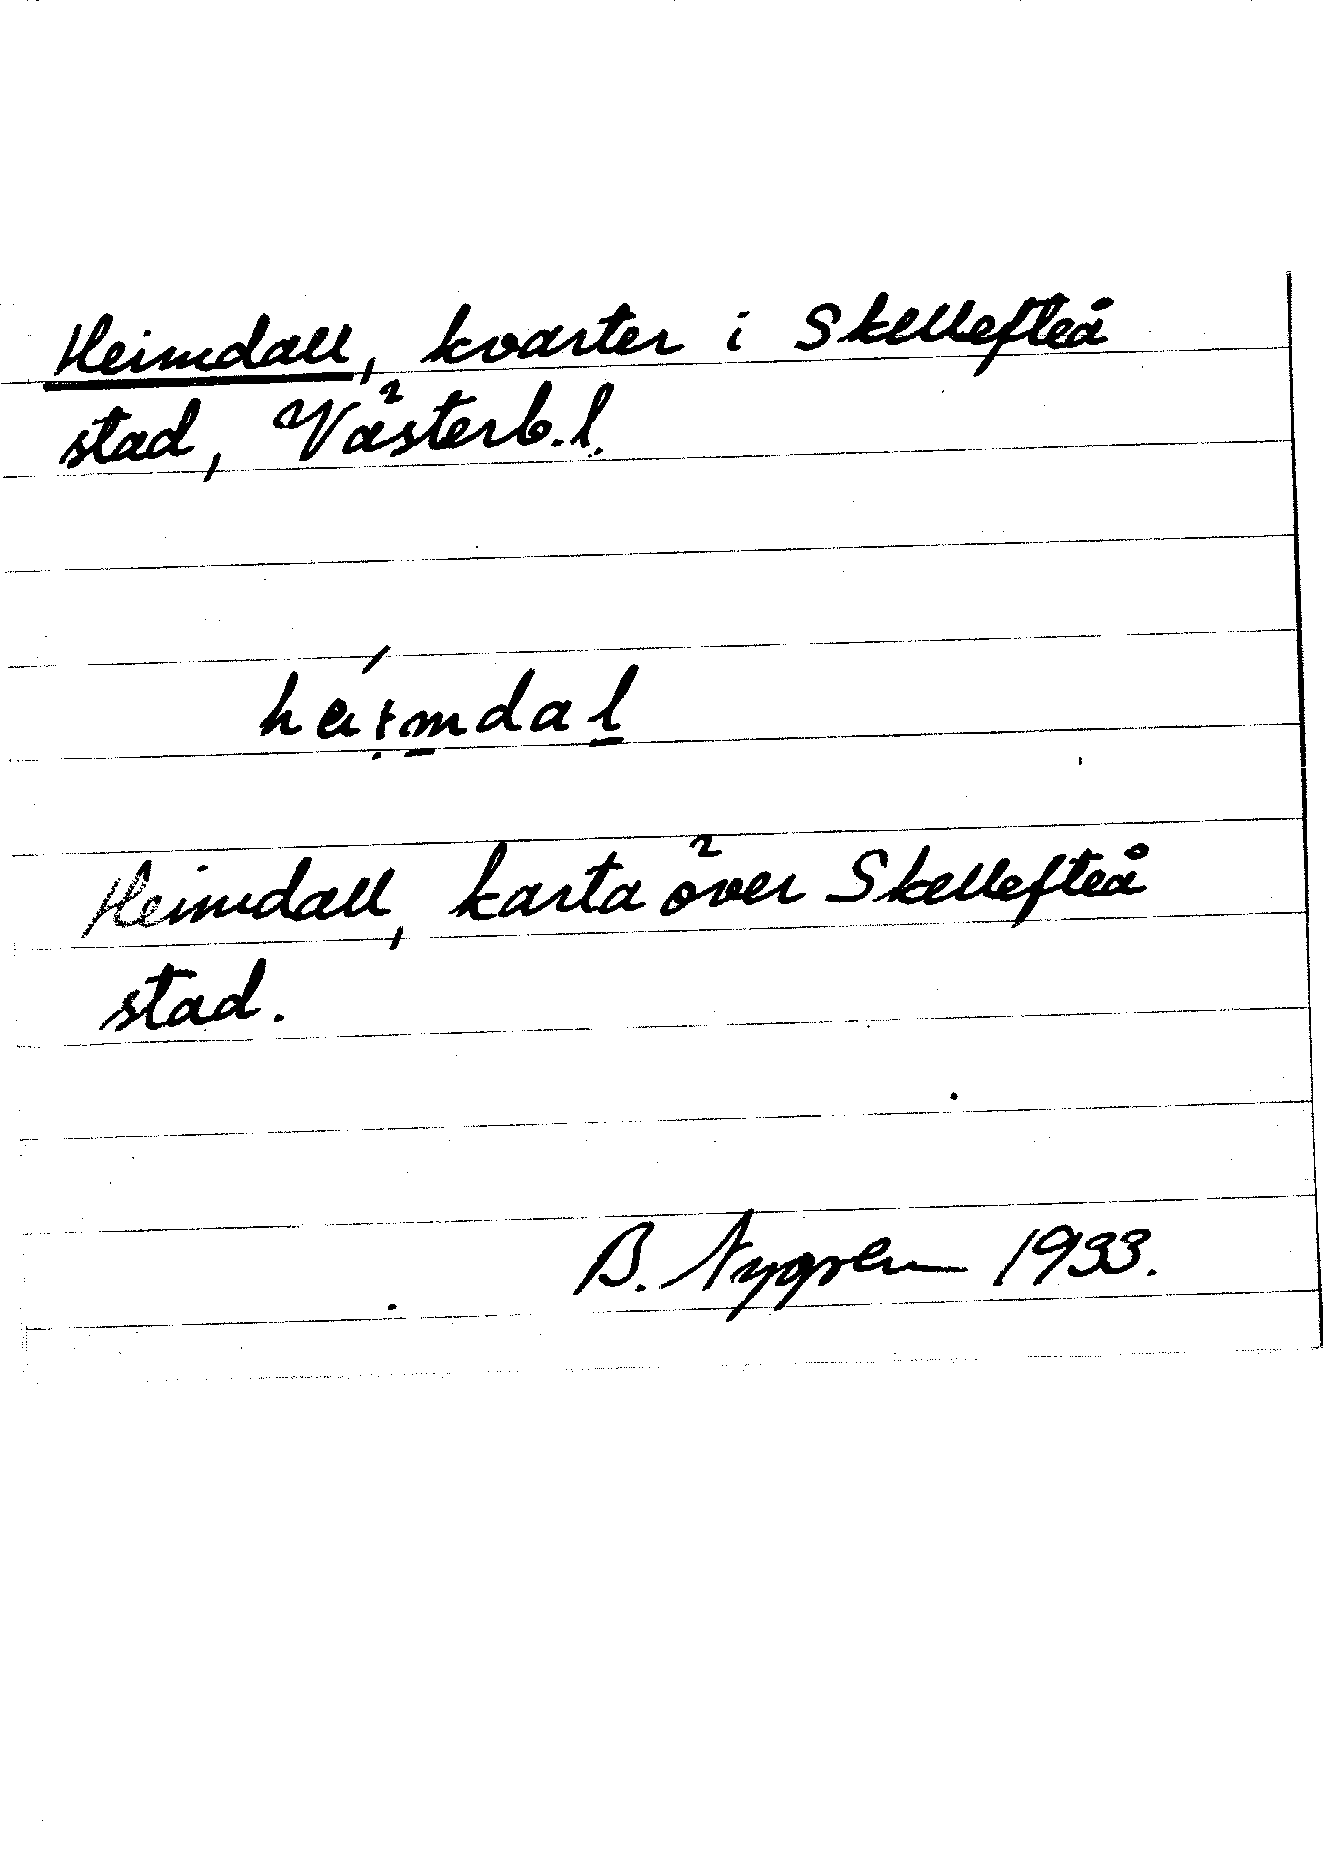 Heimdall, kvarter i Skellefteå
stad, Västerb.l.
háimdal
Heimdall, karta över Skellefteå
stad.
B. Nygren 1933.